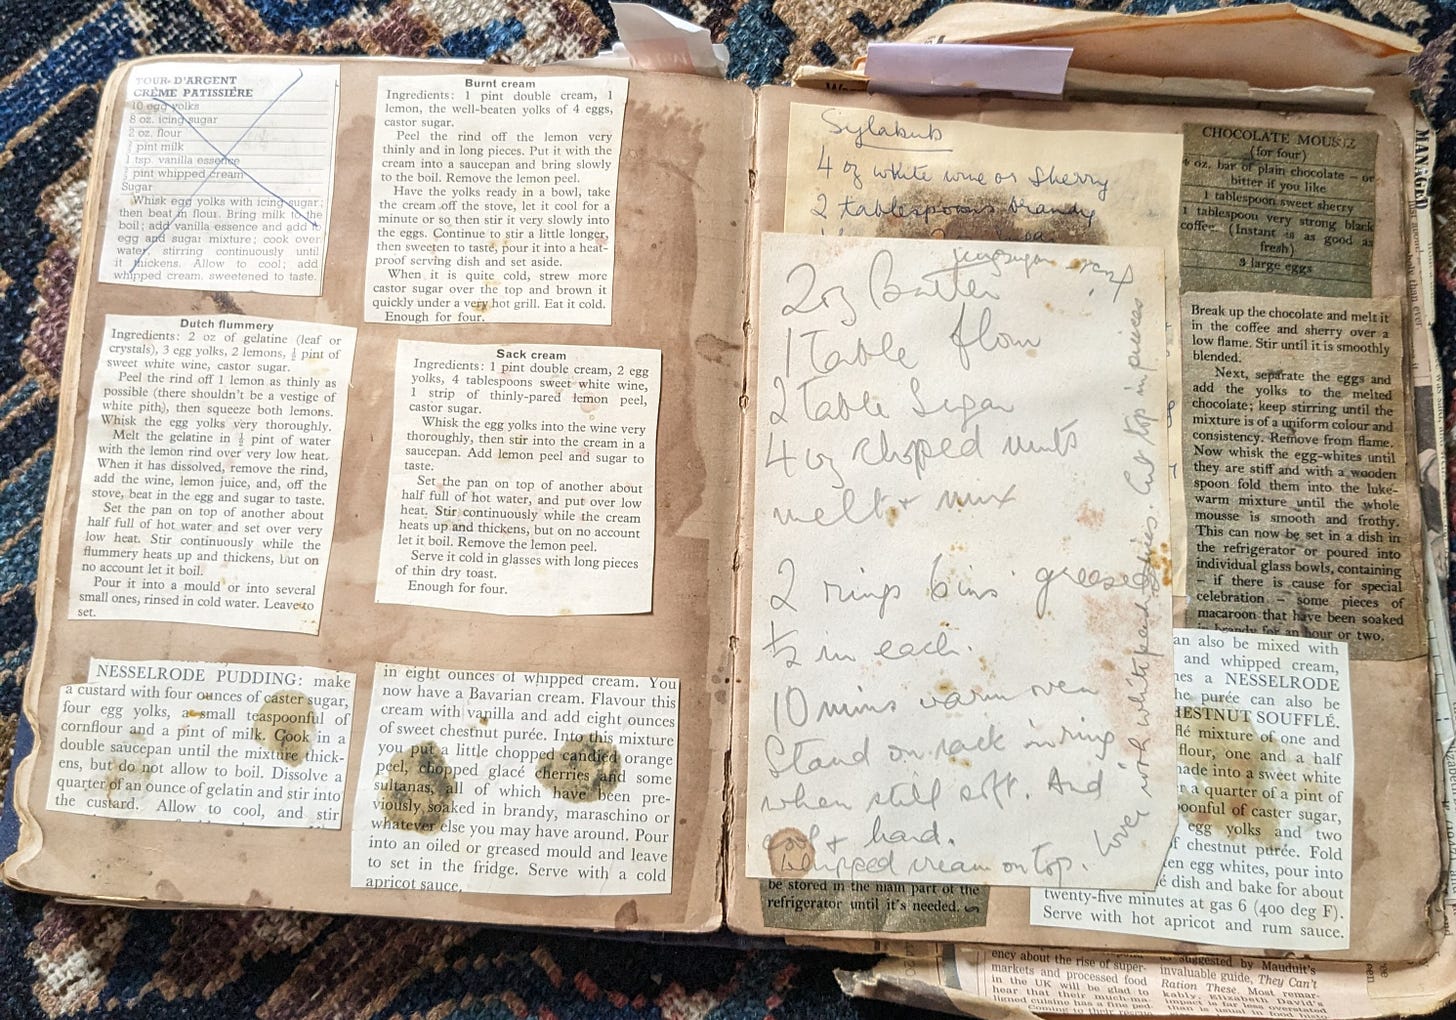 TOUR D'ARGENT
CRÈME PATISSIÈRE
10 egg yolks
8 oz. icing sugar
2 oz. flour
pint milk
1 tsp. vanilla essence
pint whipped cream
Sugar
Whisk egg yolks with icing sugar;
then beat in flour. Bring milk to the
boil; add vanilla essence and add to
egg and sugar mixture; cook over
water, stirring continuously until
it thickens. Allow to cool; add
whipped cream, sweetened to taste.
Burnt cream
Ingredients: 1 pint double cream, 1
lemon, the well-beaten yolks of 4 eggs,
castor sugar.
Peel the rind off the lemon very
thinly and in long pieces. Put it with the
cream into a saucepan and bring slowly
to the boil. Remove the lemon peel.
Have the yolks ready in a bowl, take
the cream off the stove, let it cool for a
minute or so, then stir it very slowly into
the eggs. Continue to stir a little longer,
then sweeten to taste, pour it into a heat-
proof serving dish and set aside.
When it is quite cold, strew more
castor sugar over the top and brown it
quickly under a very hot grill. Eat it cold.
Enough for four.
Dutch flummery
Ingredients: 2 oz of gelatine (leaf or
crystals), 3 egg yolks, 2 lemons, ½ pint of
sweet white wine, castor sugar.
Peel the rind off 1 lemon as thinly as
possible (there shouldn't be a vestige of
white pith), then squeeze both lemons.
Whisk the egg yolks very thoroughly.
Melt the gelatine in ½ pint of water
with the lemon rind over very low heat.
When it has dissolved, remove the rind,
add the wine, lemon juice, and, off the
stove, beat in the egg and sugar to taste.
Set the pan on top of another about
half full of hot water and set over very
low heat. Stir continuously while the
flummery heats up and thickens, but on
no account let it boil.
Pour it into a mould or into several
small ones, rinsed in cold water. Leave to
set.
Sack cream
Ingredients: 1 pint double cream, 2 egg
yolks, 4 tablespoons sweet white wine,
1 strip of thinly-pared lemon peel,
castor sugar.
Whisk the egg yolks into the wine very
thoroughly, then stir into the cream in a
saucepan. Add lemon peel and sugar to
taste.
Set the pan on top of another about
half full of hot water, and put over low
heat. Stir continuously while the cream
heats up and thickens, but on no account
let it boil. Remove the lemon peel.
Serve it cold in glasses with long pieces
of thin dry toast.
Enough for four.
NESSELRODE PUDDING: make
a custard with four ounces of caster sugar,
four egg yolks, a small teaspoonful of
cornflour and a pint of milk. Cook in a
double saucepan until the mixture thick-
ens, but do not allow to boil. Dissolve a
quarter of an ounce of gelatin and stir into
the custard. Allow to cool, and stir
in eight ounces of whipped cream. You
now have a Bavarian cream. Flavour this
cream with vanilla and add eight ounces
of sweet chestnut purée. Into this mixture
you put a little chopped candied orange
peel, chopped glacé cherries and some
sultanas, all of which have been pre-
viously soaked in brandy, maraschino or
whatever else you may have around. Pour
into an oiled or greased mould and leave
to set in the fridge. Serve with a cold
apricot sauce.
Sylabub
4 oz white wine or Sherry
2 tablespoons brandy
2oz Butter
1 Table flour
2 Table Sugar
4 oz choped nuts
melt + mix
2 rings 6 ins greased
½ in each.
10 mins warm oven
Stand on rack in ring
when still soft. And
cool + hard.
Whipped cream on top.
Cover with white
Cut top in pieces
CHOCOLATE MOUSSE
(for four)
oz. bar of plain chocolate – or
bitter if you like
1 tablespoon sweet sherry
1 tablespoon very strong black
coffee (Instant is as good as
fresh)
3 large eggs
Break up the chocolate and melt it
in the coffee and sherry over a
low flame. Stir until it is smoothly
blended.
Next, separate the eggs and
add the yolks to the melted
chocolate; keep stirring until the
mixture is of a uniform colour and
consistency. Remove from flame.
Now whisk the egg-whites until
they are stiff and with a wooden
spoon fold them into the luke-
warm mixture until the whole
mousse is smooth and frothy.
This can now be set in a dish in
the refrigerator or poured into
individual glass bowls, containing
– if there is cause for special
celebration – some pieces of
macaroon that have been soaked
in brandy for an hour or two.
be stored in the main part of the
refrigerator until it's needed.
can also be mixed with
and whipped cream,
a NESSELRODE
purée can also be
CHESTNUT SOUFFLÉ.
mixture of one and
flour, one and a half
made into a sweet white
a quarter of a pint of
spoonful of caster sugar,
egg yolks and two
of chestnut purée. Fold
egg whites, pour into
dish and bake for about
twenty-five minutes at gas 6 (400 deg F).
Serve with hot apricot and rum sauce.
ency about the rise of super-
markets and processed food
in the UK will be glad to
hear that their much-ma-
ligned cuisine has a fine
Coming to their rescue
as suggested by Mauduit's
invaluable guide, They Can't
Ration These. Most remar-
kably, Elizabeth David's
impact is far less overstated
than is usual in food